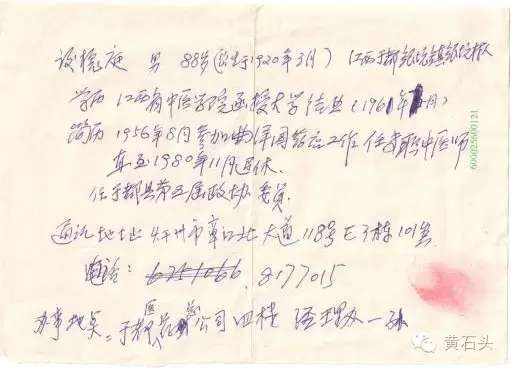 男 88岁(出生于1920年3月) 江西于都银坑镇银坑
学历 江西省中医学院函授大学结业 (1961年 月)
简历 1956年8月参加 工作 任专职中医师
直至1980年11月退休.
任于都县第五届政协委员.
通讯地址 州市章江北大道118号E3栋101室
电话: 6751066 . 8177015
办事地点: 于都医药公司四楼 经理办
600025600121
黄石头